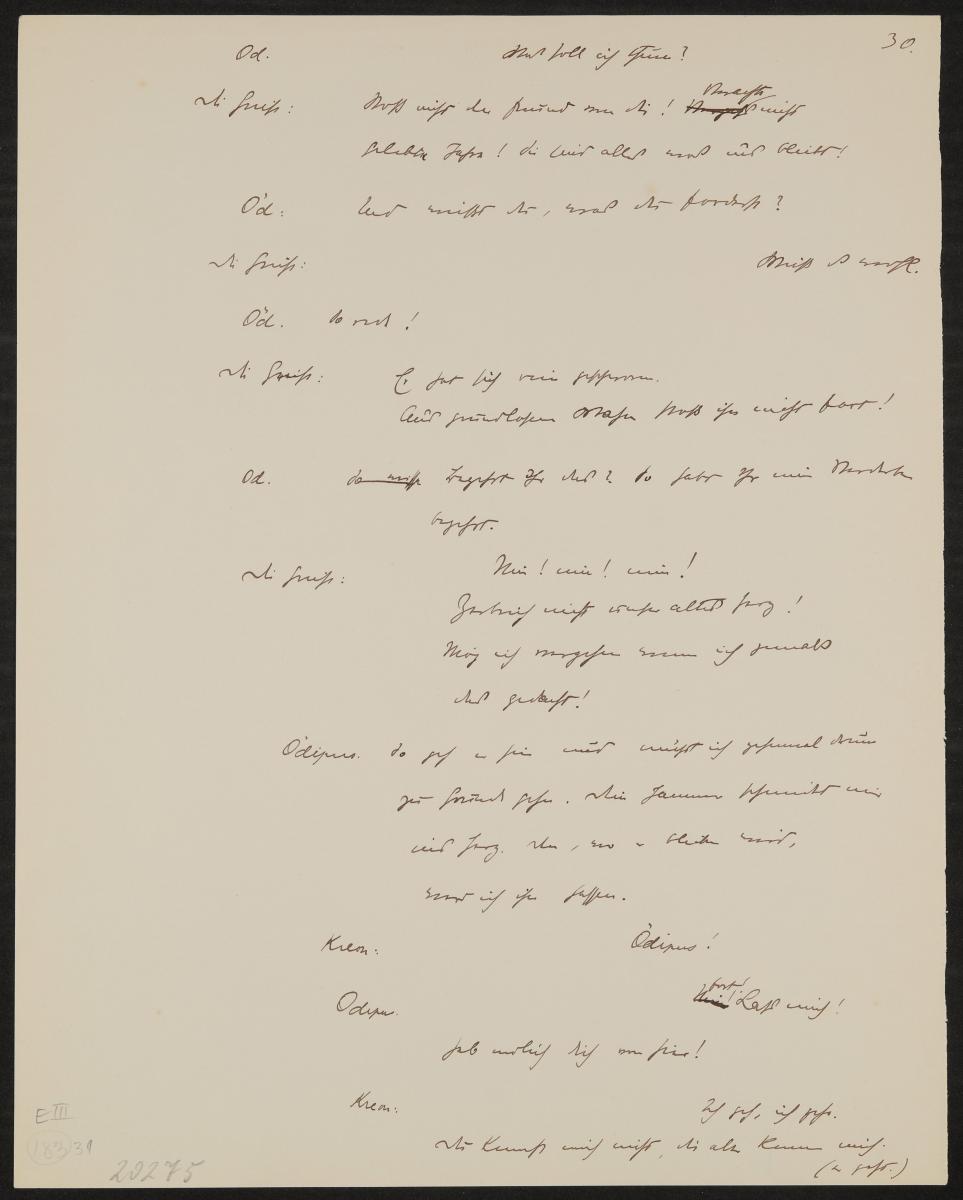 30.
Öd. Was soll ich thun?
Die Greise: Stoß nicht den Freund von dir! Verachte nicht
gelebte Jahre! die und alles was uns bleibt!
Öd: Und weißt du, was du forderst?
Die Greise: Weiß es wohl.
Öd. So red!
Die Greise: Er hat sich rein geschworen.
Aus grundlosem Wahn stoß ihn nicht fort!
Öd. So wisse Begehrt Ihr das? So habt Ihr mein Verderben
begehrt.
Die Greise: Nein! nein! nein!
Zerbrich nicht unser altes Herz!
Mög ich vergehen wenn ich jemals
das gedacht!
Ödipus. So geh er hin und müsst ich zehnmal drum
zu Grunde gehn. Dein Jammer schneidet mir
ins Herz. Den, wo er bleiben wird,
werd ich ihn hassen.
Kreon: Ödipus!
Ödipus. Nein! fort! Laß mich!
heb endlich dich von hier!
Kreon: Ich geh, ich gehe.
Du kennst mich nicht, die aber kennen mich.
(er geht.)
E III
183 31
20275